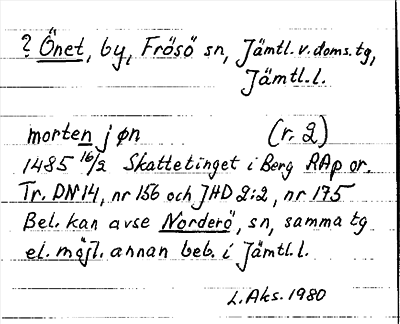 ? Önet, by, Frösö sn, Jämtl. v. doms. tg,
Jämtl. l.
morten j øn (r. 2)
1485 16/2 Skattetinget i Berg RAp or.
Tr. DN 14, nr 156 och JHD 2:2, nr 175
Bel. kan avse Norderö, sn, samma tg
el. möjl. annan beb. i Jämtl. l.
L. Aks. 1980